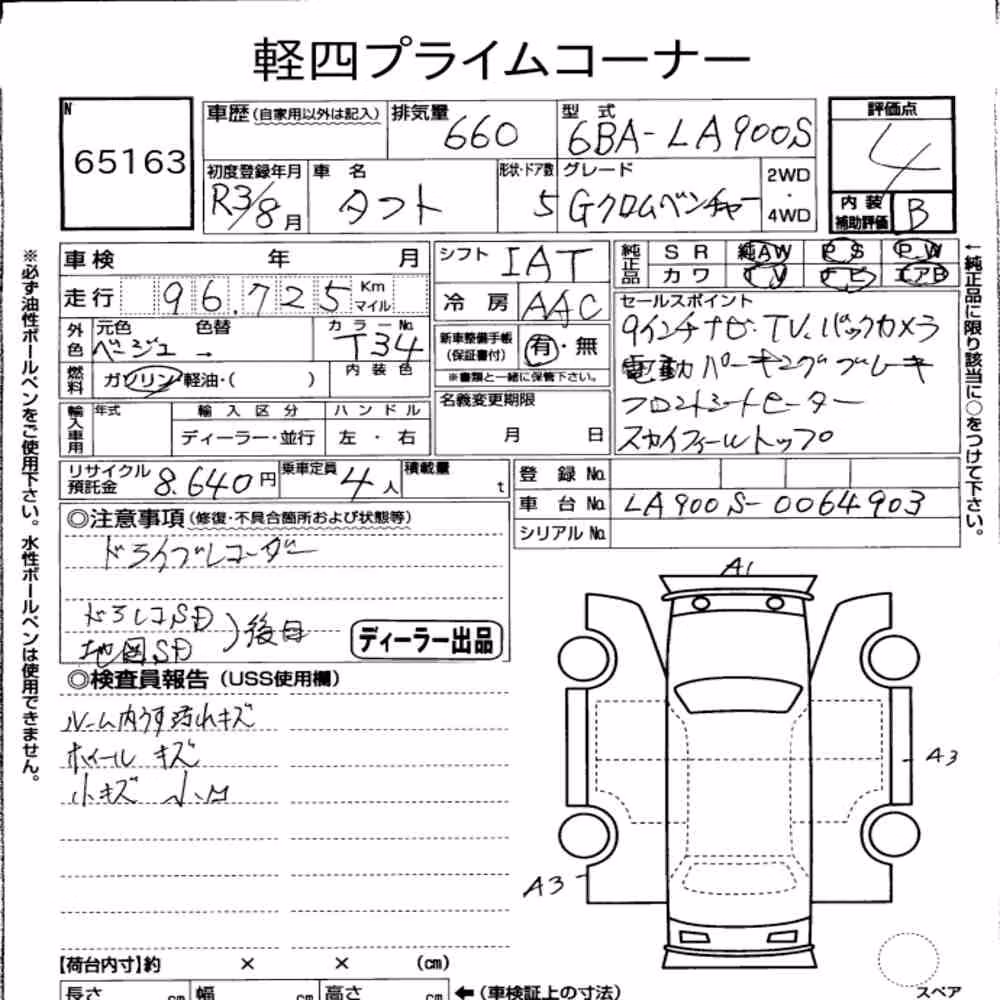 軽四プライムコーナー
N
65163
車歴(自家用以外は記入)
排気量
660
型式
6BA-LA900S
評価点
4
初度登録年月
R3/8月
車名
タフト
形状・ドア数
5
グレード
Gクロムベンチャー
2WD
・
4WD
内装
補助評価
B
車検 年 月
走行 96,725 Km
マイル
シフト
IAT
冷房
AAC
純正品
SR 純AW PS PW
カワ TV ナビ エアB
外色
元色 色替
ベージュ →
カラーNo.
T34
燃料
ガソリン・軽油・( )
内装色
新車整備手帳
(保証書付)
有・無
※書類と一緒に保管下さい。
セールスポイント
9インチナビ・TV. バックカメラ
電動パーキングブレーキ
フロントシートヒーター
スカイフィールトップ
輸入車用
年式
輸入区分
ディーラー・並行
ハンドル
左・右
名義変更期限
月 日
リサイクル
預託金
8.640円
乗車定員
4人
積載量
t
登録No.
車台No. LA900S-0064903
シリアルNo.
◎注意事項(修復・不具合箇所および状態等)
ドライブレコーダー
ドラレコSD
地図SD
)後日
ディーラー出品
◎検査員報告(USS使用欄)
ルーム内うす汚れキズ
ホイール キズ
小キズ 小凹
A1
A3
A3
【荷台内寸】約 × × (cm)
長さ cm 幅 cm 高さ cm ←(車検証上の寸法)
スペア
※必ず油性ボールペンをご使用下さい。水性ボールペンは使用できません。
←純正品に限り該当に○をつけて下さい。